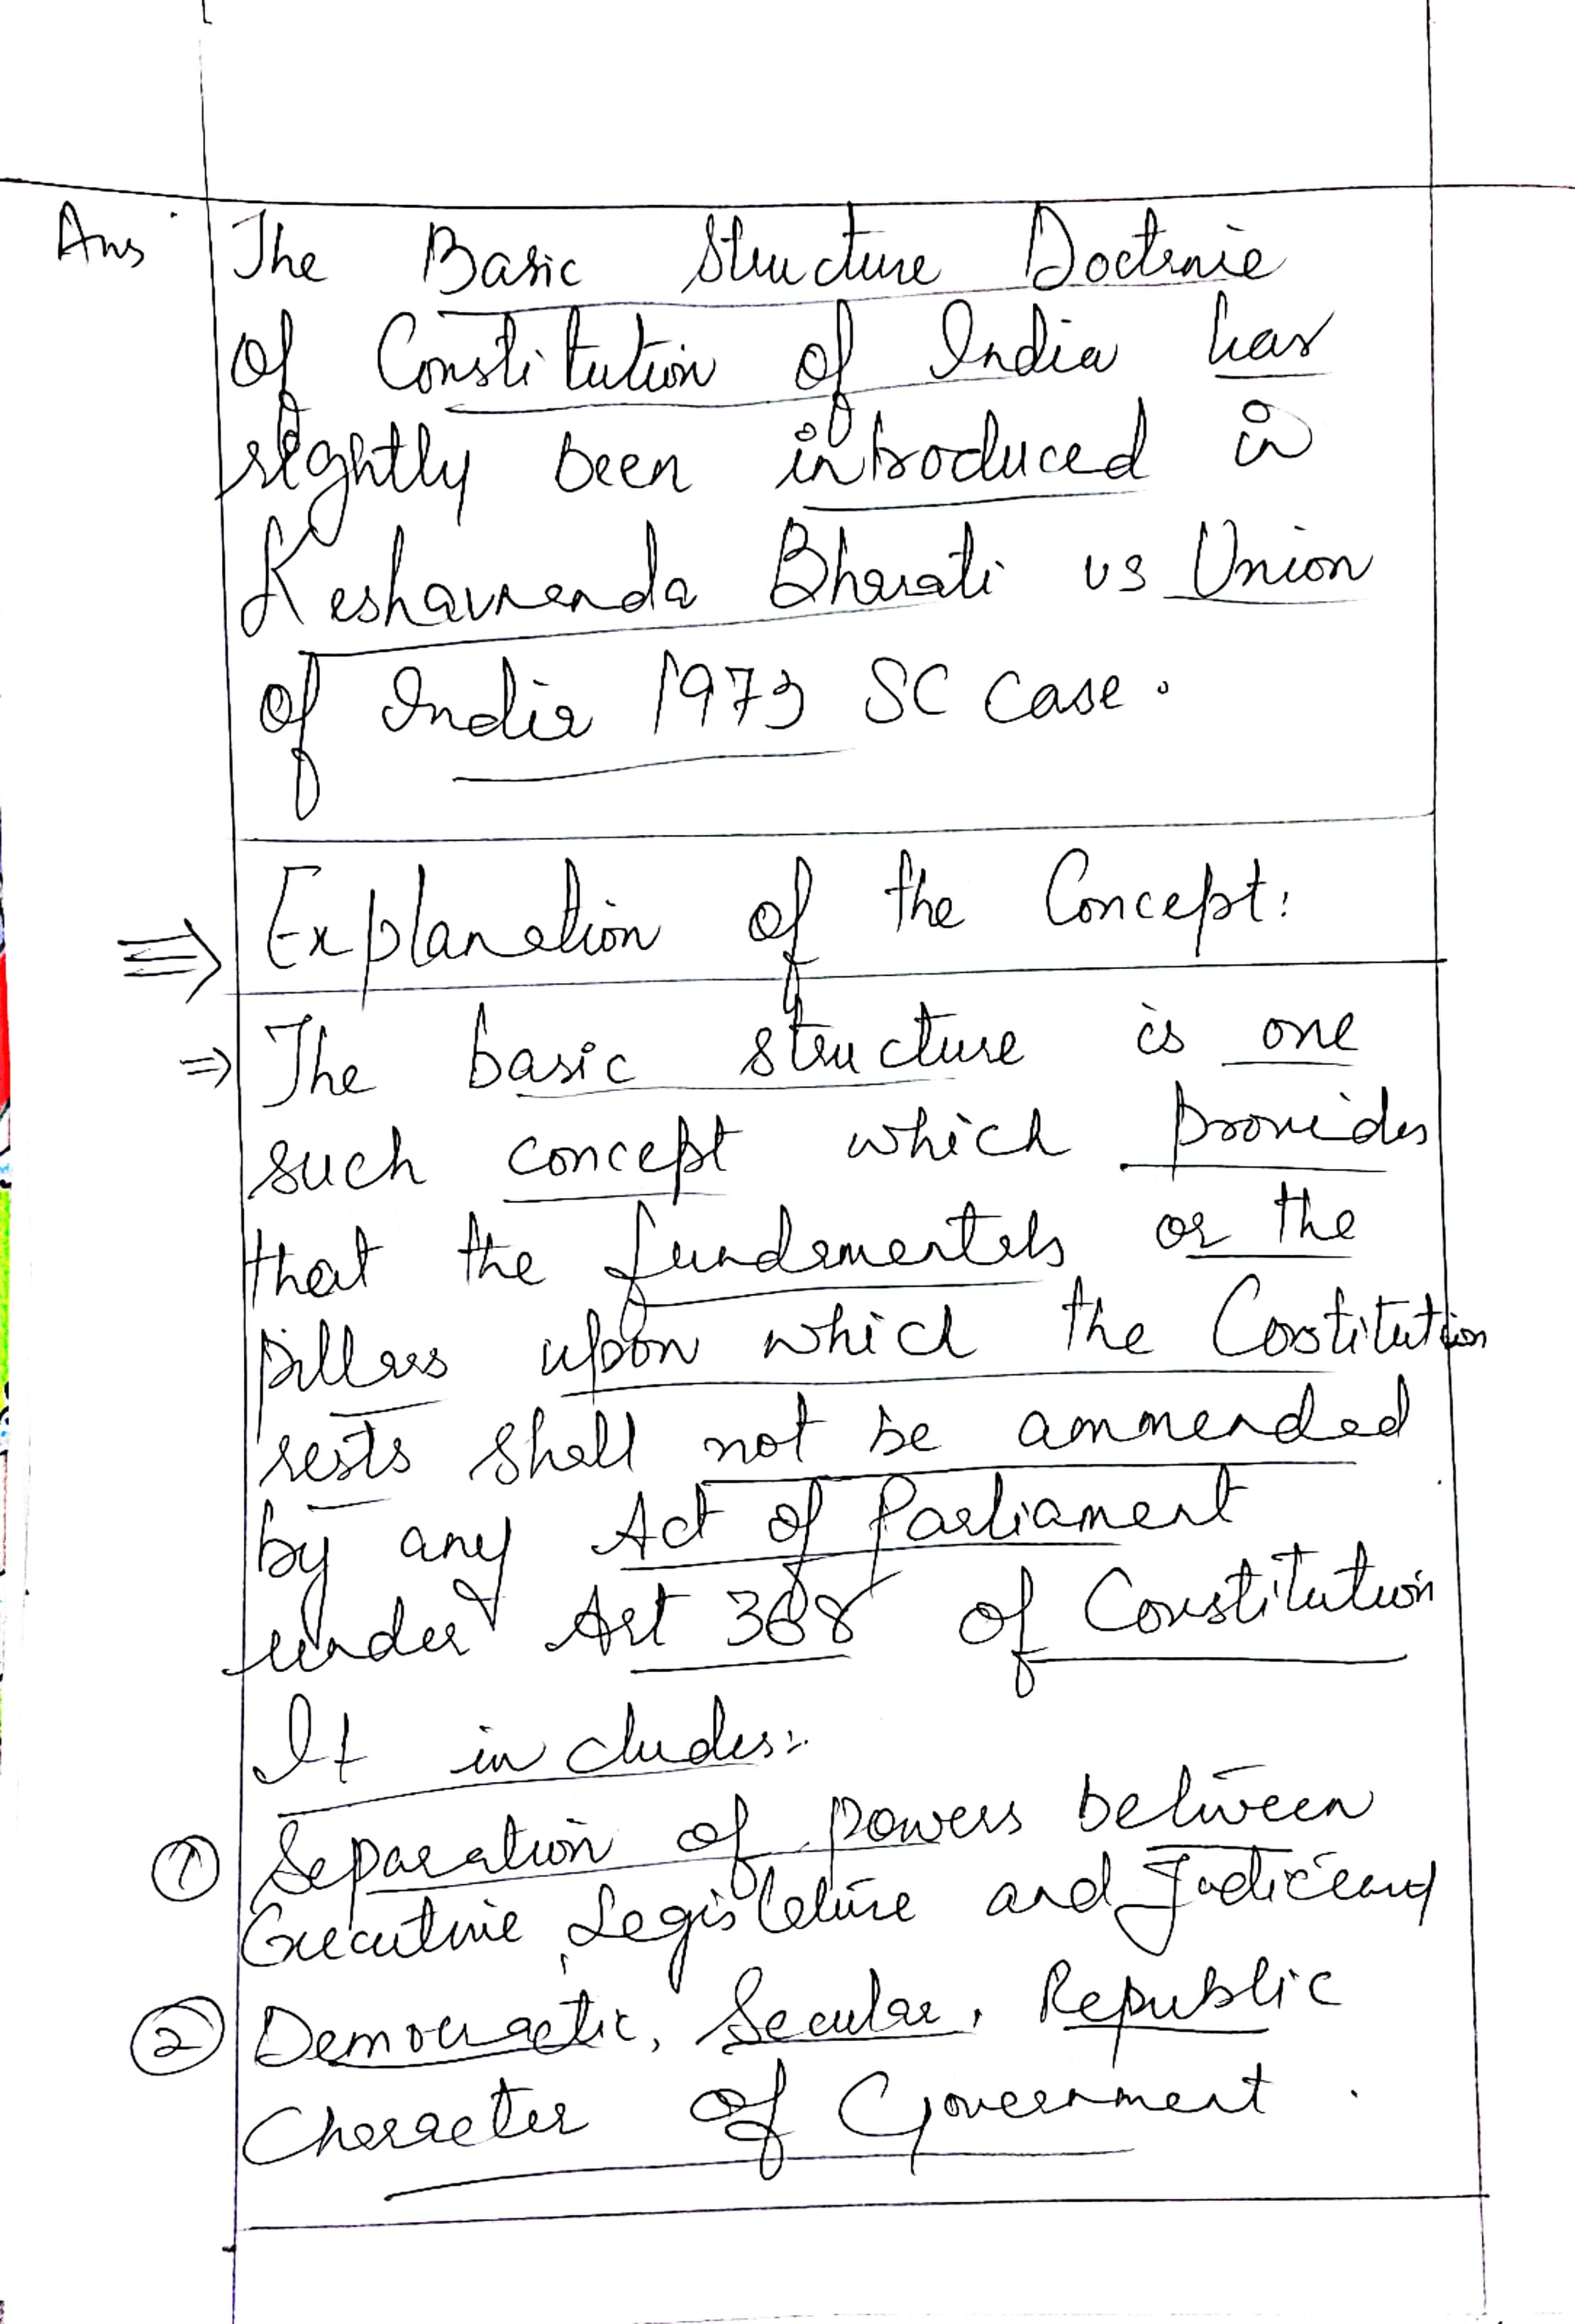 Ans. The Basic Structure Doctrine
of Constitution of India has
rightly been introduced in
Keshavnanda Bharati vs Union
of India 1973 SC case.
⇒ Explanation of the Concept:
⇒ The basic structure is one
such concept which provides
that the fundamentals or the
pillars upon which the Costitution
rests shall not be ammended
by any Act of Parliament
under Art 368 of Constitution
It includes:
① Separation of powers between
Executive, Legislature and Judiciary
② Democractic, Secular, Republic
Character of Government.